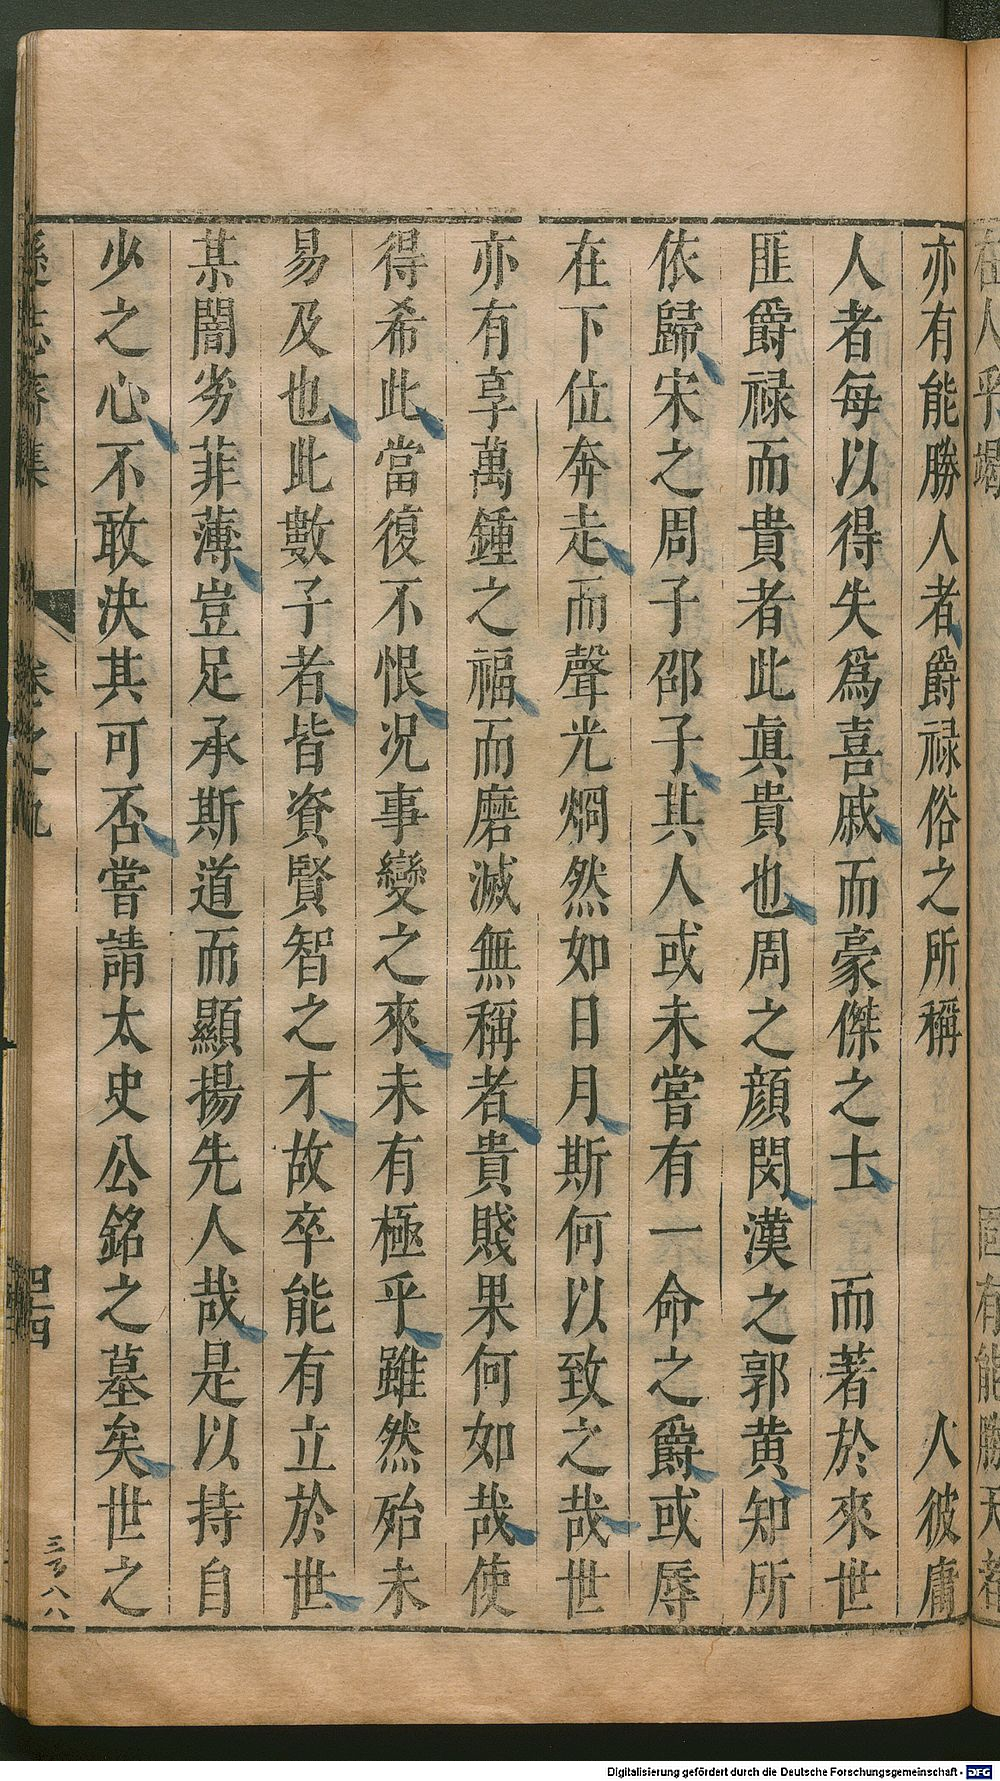 亦有能勝人者爵祿俗之所稱 人彼庸
人者每以得失爲喜戚而豪傑之士 而著於來世
匪爵祿而貴者此眞貴也周之顏閔漢之郭黄知所
依歸宋之周子邵子其人或未嘗有一命之爵或辱
在下位奔走而聲光烱然如日月斯何以致之哉世
亦有享萬鍾之福而磨滅無稱者貴賤果何如哉使
得希此當復不恨况事變之來未有極乎雖然殆未
易及也此數子者皆資賢智之才故卒能有立於世
某闇劣菲薄豈足承斯道而顯揚先人哉是以持自
少之心不敢決其可否嘗請太史公銘之墓矣世之
卷之九
四古四
Digitalisierung gefördert durch die Deutsche Forschungsgemeinschaft - DFG